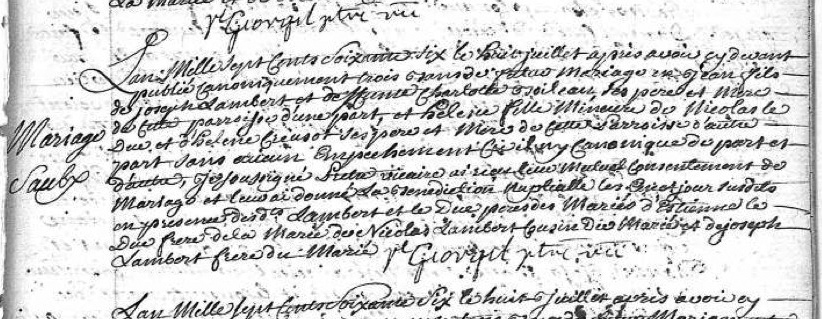 la Mariée et de
Giorgil ptre vic
Lan Mille Sept Cents Soixante Six le huit juillet apres avoir cy devant
publié Canoniquement trois bans de futur Mariage entre jean fils
de joseph Lambert et de Charlotte ses pere et Mere
de cette parroisse d'une part, et helene fille Mineure de Nicolas le
Duc et d'helene Creusot ses pere et Mere de cette parroisse d'autre
Mariage
part sans aucun Empechement Civil ny Canonique de part et
Saulx
d'autre, je soussigné Prétre vicaire ai reçu leur Mutuel Consentement de
Mariage et leur ai donné la benediction nuptialle les an et jour susdits
en presence desd. Lambert et le Duc peres des Mariés d'Estienne le
Duc frere de la Mariée de Nicolas Lambert Cousin du Marié et de joseph
Lambert frere du Marié Giorgil ptre vic
Lan Mille Sept Cents Soixante Six le huit juillet apres avoir cy